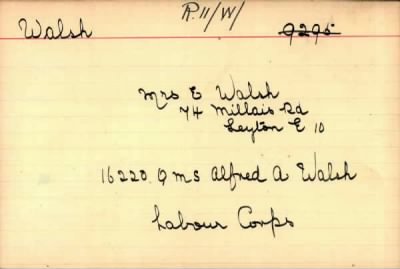 R.11/W/
Walsh 9295
Mrs E Walsh
74 Millais Rd
Leyton E 10
16220 QMS Alfred A Walsh
Labour Corps